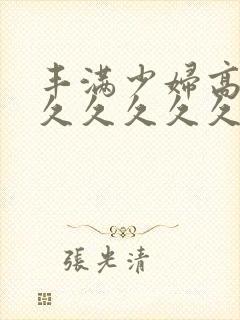 丰满少婦高
久久久久久
張光清